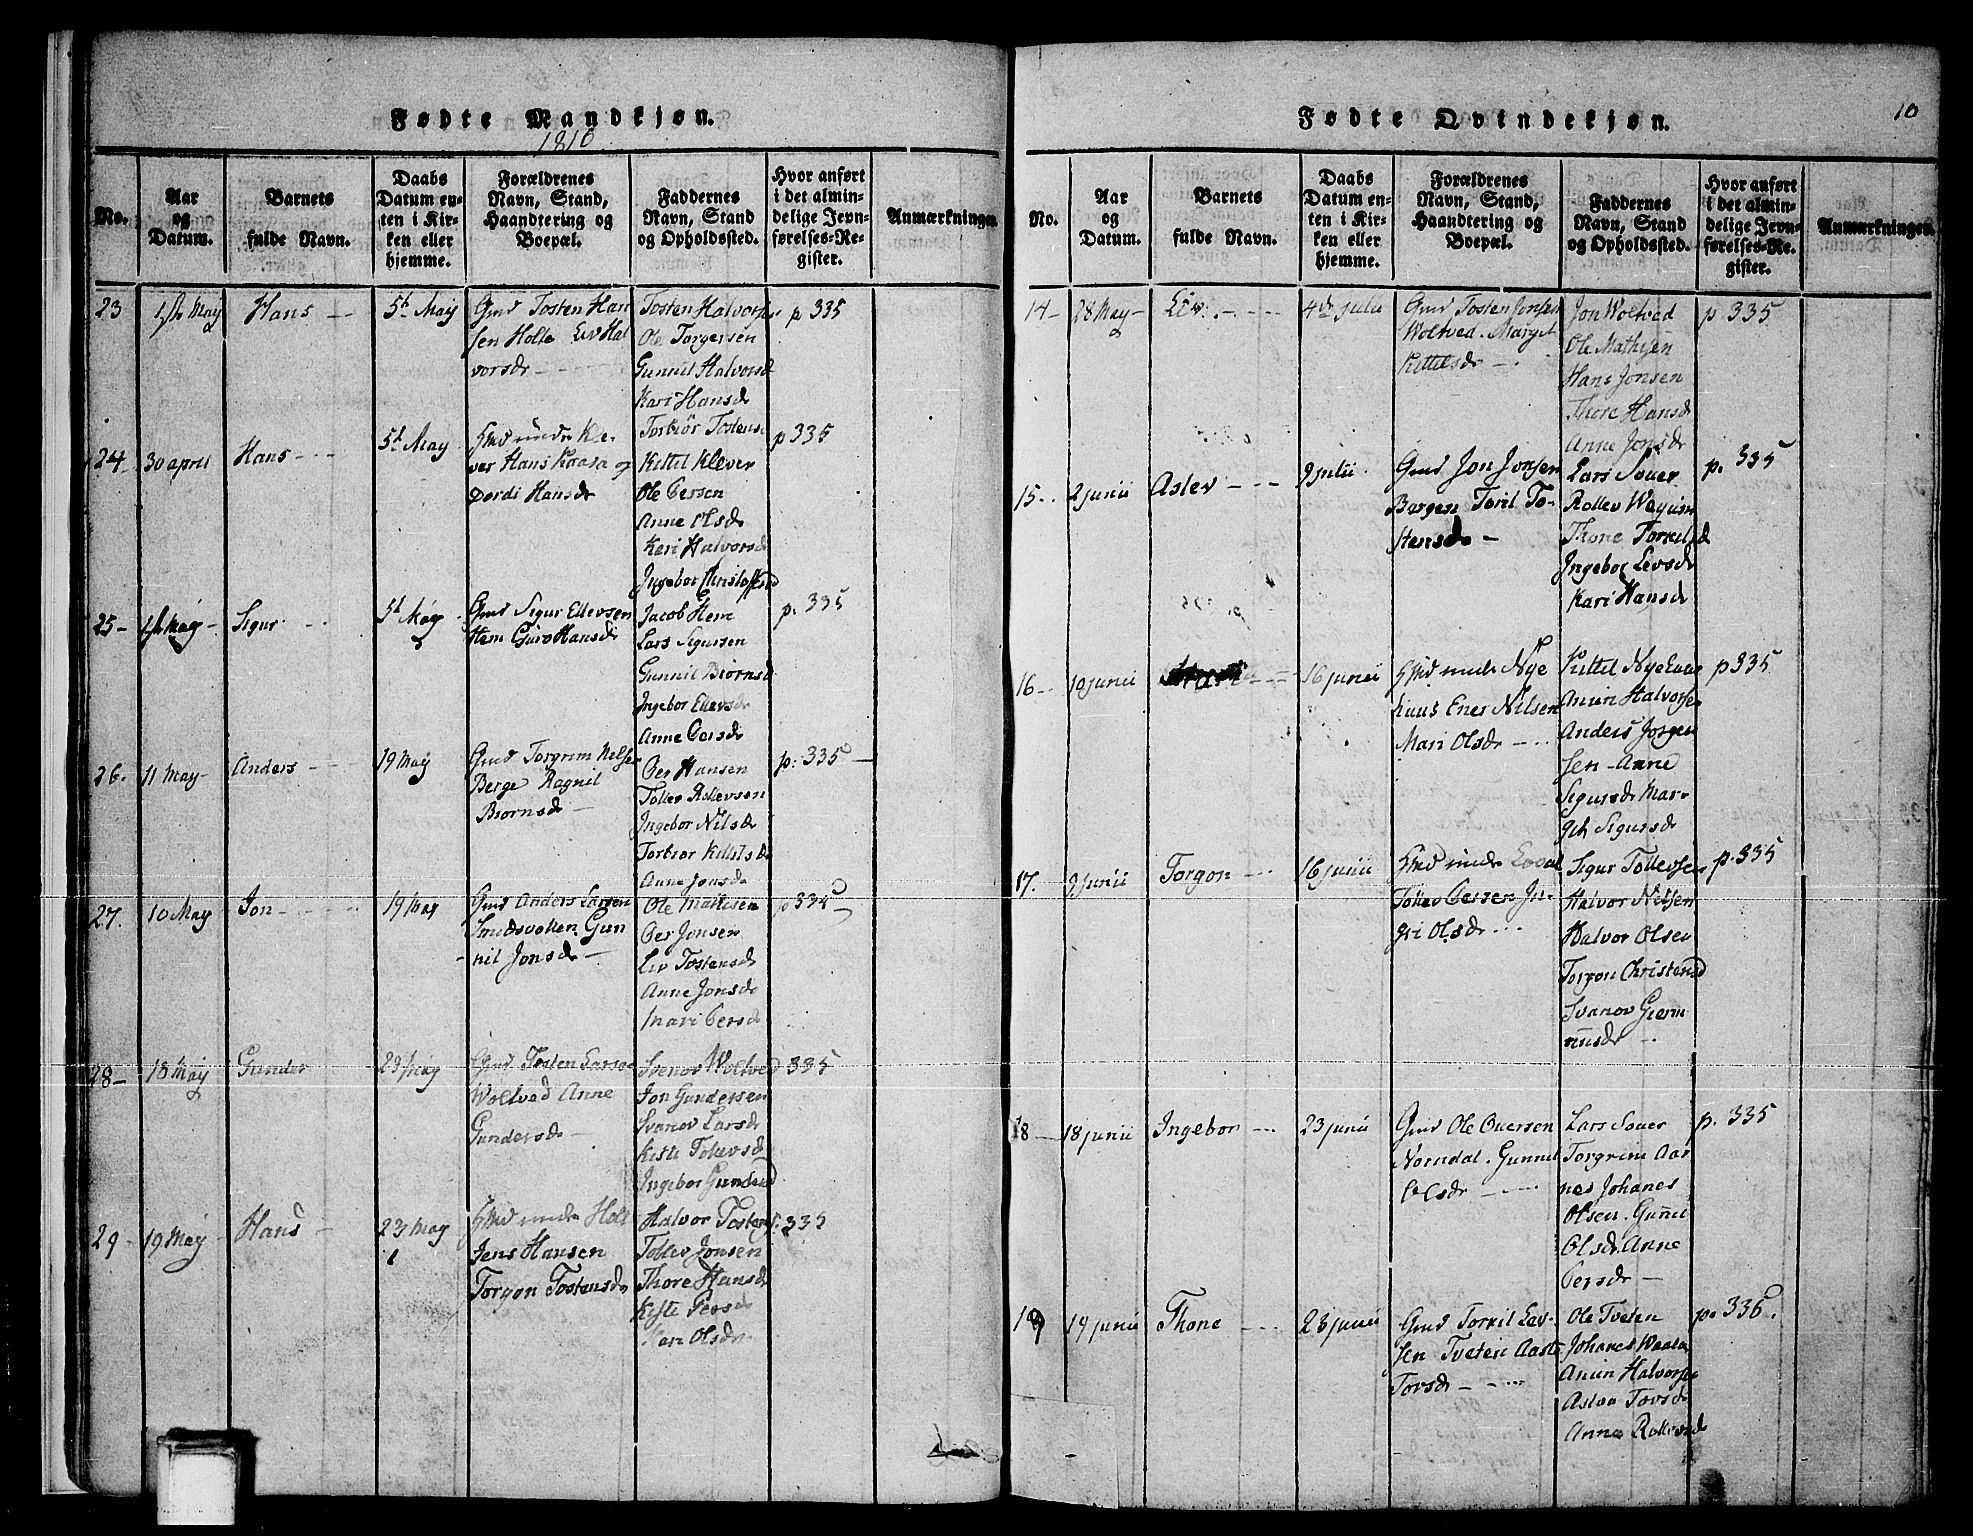 Fødte Mandkjøn.
1816
No.
Aar
og
Datum.
Barnets
fulde Navn.
Daabs
Datum en-
ten i Kir-
ken eller
hjemme.
Forældrenes
Navn, Stand,
Haandtering og
Boepæl.
Faddernes
Navn, Stand
og Opholdssted.
Hvor anført
i det almin-
delige Jevn-
førelses-Re-
gister.
Anmærkninger.
23
1ste May
Hans
5te May
Gmd Tosten Han
sen Holte Liv Hal
vorsdr
Tosten Halvorsen
Ole Torgersen
Gunnil Halvorsd
Kari Hansdr
Torbiør Tostens
p 335
24
30 april
Hans
5te May
Hmd under Kle-
ver Hans Kaasa og
Dordi Hansdr
Kittil Klever
Ole Persen
Anne Olsdr
Keri Halvorsd
Ingebor Christoffersd
p 335
25
1ste May
Sigur
5te May
Gmd Sigur Ellevsen
Hem Guro Hansdr
Jacob Hem
Lars Sigursen
Gunnil Biørnsd
Ingebor Ellevsdr
Anne Persdr
p. 335
26.
11 May
Anders
19 May
Gmd Torgrim Nilse
Berge Ragnil
Biørnsdr
Per Hansen
Tollev Rollevsen
Ingebor Nilsdr
Torbior Kittilsdr
Anne Jonsdr
p: 335
27.
10 May
Jon
19 May
Gmd Anders Larsen
Smedsvolten Gun
nil Jonsdr
Ole Mathisen
Per Jonsen
Liv Tostensdr
Anne Jonsdr
Mari Persdr
p 334
28
18 May
Gunder
23 May
Gmd Tosten Larse
Woltved Anne
Gundersdr
Svenor Woltved
Jon Gundersen
Svanov Larsdr
Kisti Tollevsdr
Ingebor Gundersd
335
29
19 May
Hans
23 May
Hmd under Holt
Jens Hansen
Torgon Tostensdr
Halvor Tostens
Tollev Jonsen
Thore Hansdr
Kisti Persdr
Mari Olsdr
335
Fødte Qvindekjøn.
10
No.
Aar
og
Datum.
Barnets
fulde Navn.
Daabs
Datum en-
ten i Kir-
ken eller
hjemme.
Forældrenes
Navn, Stand,
Haandtering og
Boepæl.
Faddernes
Navn, Stand
og Opholdssted.
Hvor anført
i det almin-
delige Jevn-
førelses-Re-
gister.
Anmærkninger.
14
28 May
Liv
4de julii
Gmd Tosten Jonsen
Woltved. Marget
Kittilsdr
Jon Woltved
Ole Mathisen
Hans Jonsen
Thore Hansdr
Anne Jonsdr
p 335
15
2 junii
Aslev
9 julii
Gmd Jon Jonsen
Borgen Toril To-
stensdr
Lars Sauer
Rollev
Thone Torkilsd
Ingebor Levsdr
Kari Hansdr
p. 335
16
10 junii
16 junii
Hmd under Nye
Kaas Ener Nilsen
Mari Olsdr
Kittil Nyekaas
Anun Halvorsen
Anders Jørgen
sen Anne
Sigursdr Mar-
git Sigursdr
p 335
17.
9 junii
Torgon
16 junii
Hmd under
Tollev Persen In-
gri Olsdr
Sigur Tollevsen
Halvor Nilsen
Halvor Olsen
Torgon Christensd
Svanov Gierm
undsdr
p. 335
18
18 junii
Ingebor
23 junii
Gmd Ole Oversen
Nomdal. Gunnil
Olsdr
Lars Sauer
Torgrim Aar
nes Johanes
Olsen. Gunil
Olsdr. Anne
Persdr
p. 335
19
14 junii
Thone
23 junii
Gmd Torkil Lev-
sen Tveten Aaste
Torsdr
Ole Tveten
Johanes Waala
Anun Halvorsen
Aslou Tovsdr
Anne Rollevsdr
p. 336.